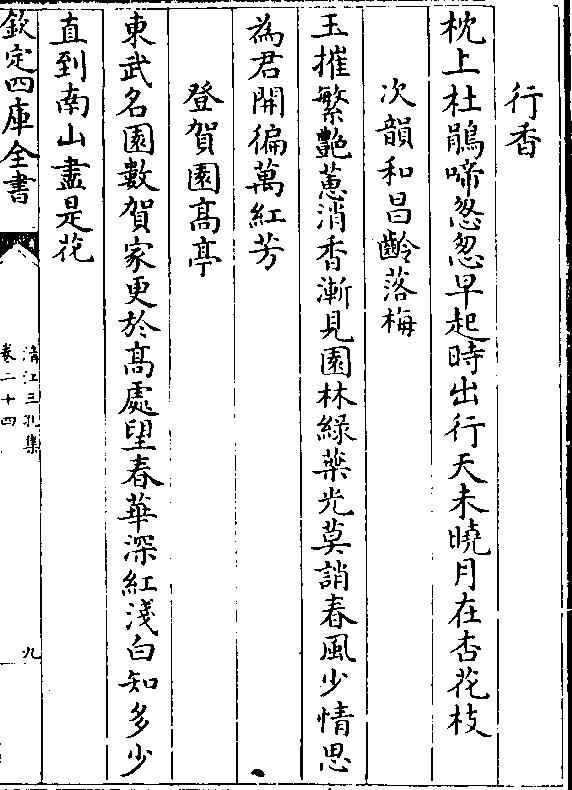 行香
枕上杜鵑啼怱怱早起時出行天未曉月在杏花枝
次韻和昌齡落梅
玉摧繁艷蕙消香漸見園林綠葉光莫誚春風少情思
為君開徧萬紅芳
登賀園高亭
東武名園數賀家更於高處望春華深紅淺白知多少
直到南山盡是花
欽定四庫全書
清江三孔集
卷二十四
九